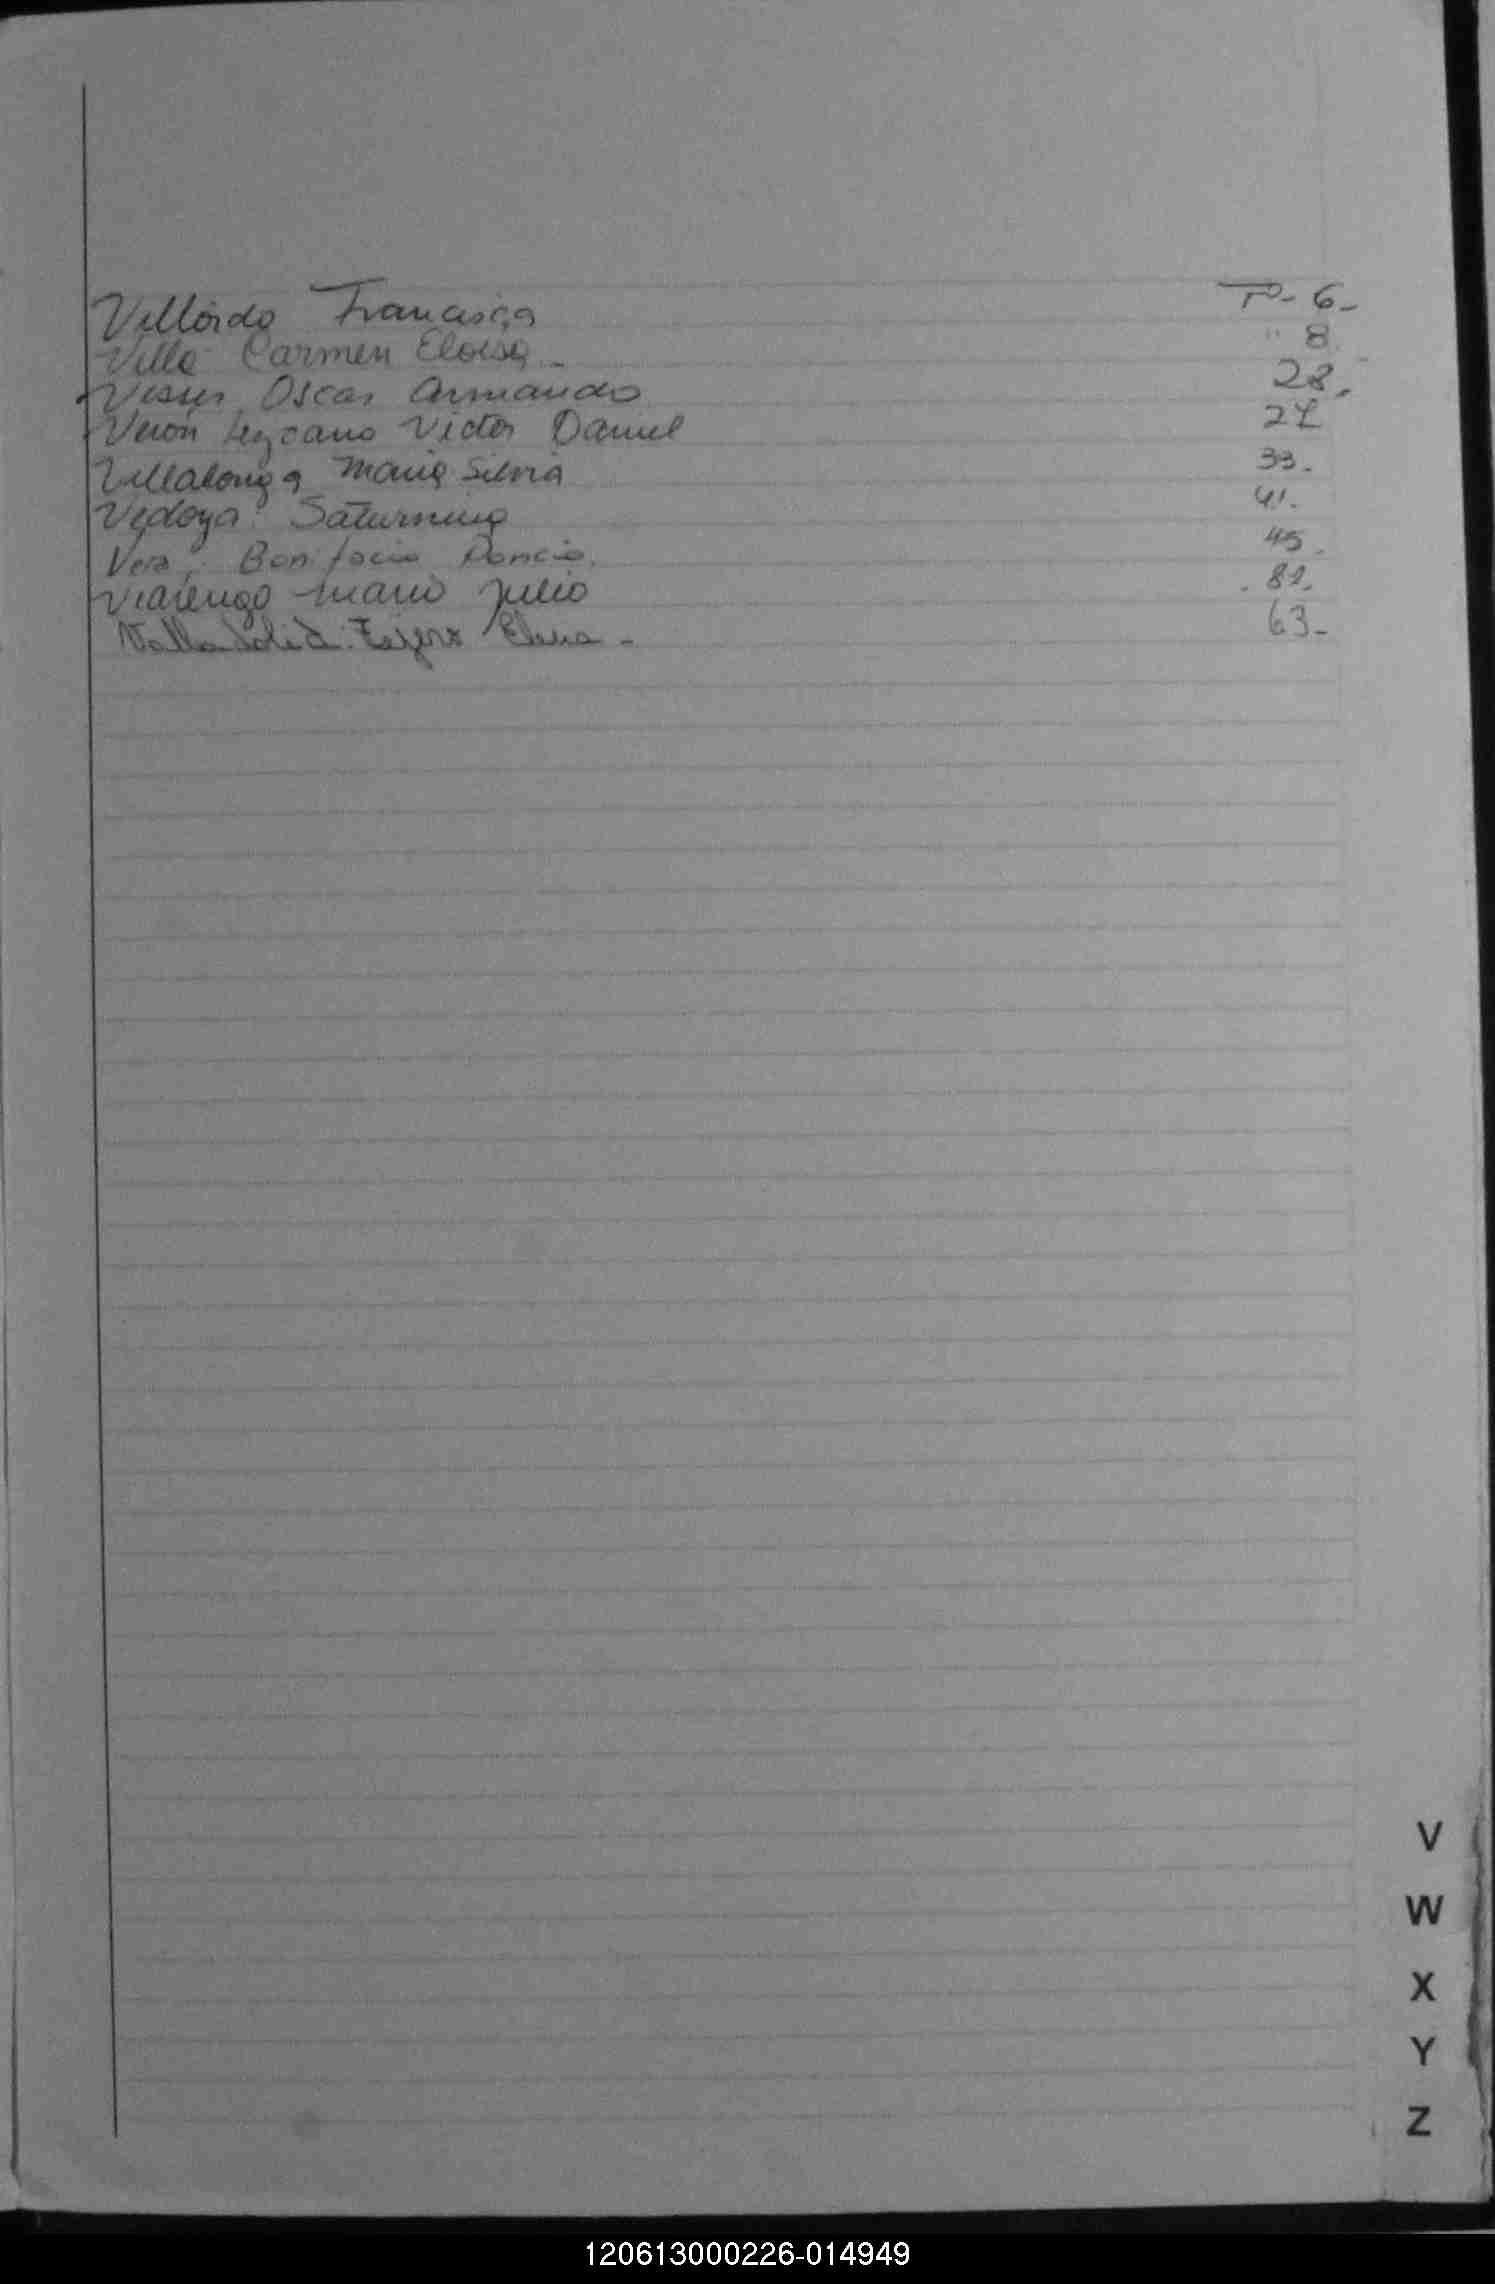 Villordo Francisca Fº- 6-
Villa Carmen Eloisa - " 8
Oscar Armando 28.
Veron Lezcano Victor Daniel 27
Villalonga Maria Silvia 33.
Vedoya Saturnino 41.
Vera, Bonifacio Poncio. 45.
Viarengo Mario Julio 82.
Valladolid Elena - 63-
V
W
X
Y
Z
120613000226-014949